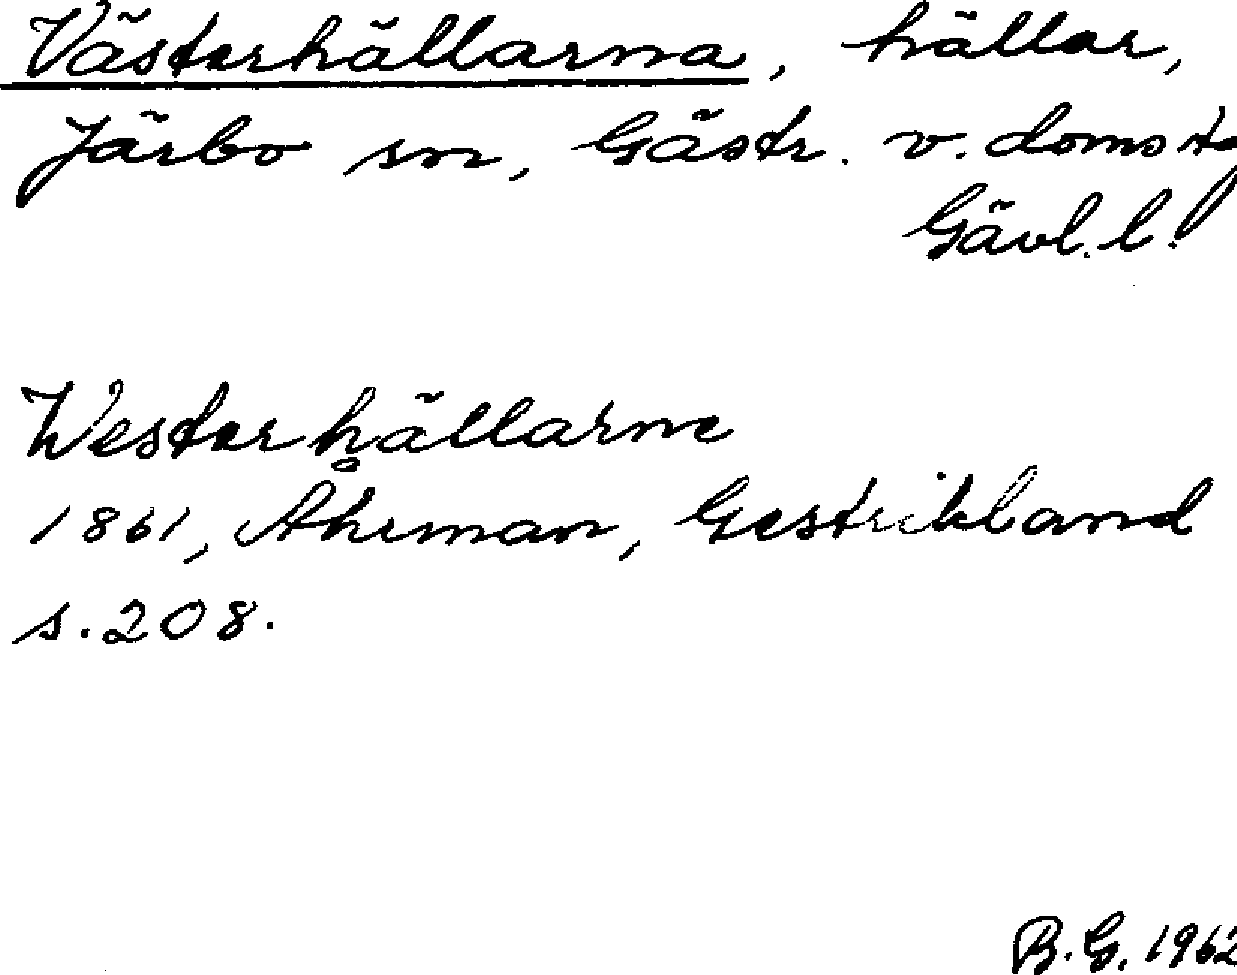 Västerhällarna, hällar,
Järbo sn, Gästr. v. domstg
Gävl. l.
Westerhällarne
1861, Åhrman, Gestrikland
s. 208.
B.G. 1962